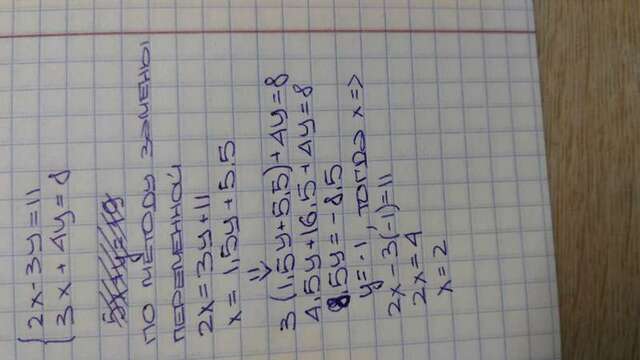 { 2x-3y=11
3x+4y=8
ПО МЕТОДУ ЗАМЕНЫ
ПЕРЕМЕННОЙ
2x=3y+11
x=1,5y+5,5
⇓
3(1,5y+5,5)+4y=8
4,5y+16,5+4y=8
8,5y=-8,5
y=-1, тогда x=>
2x-3(-1)=11
2x=4
x=2